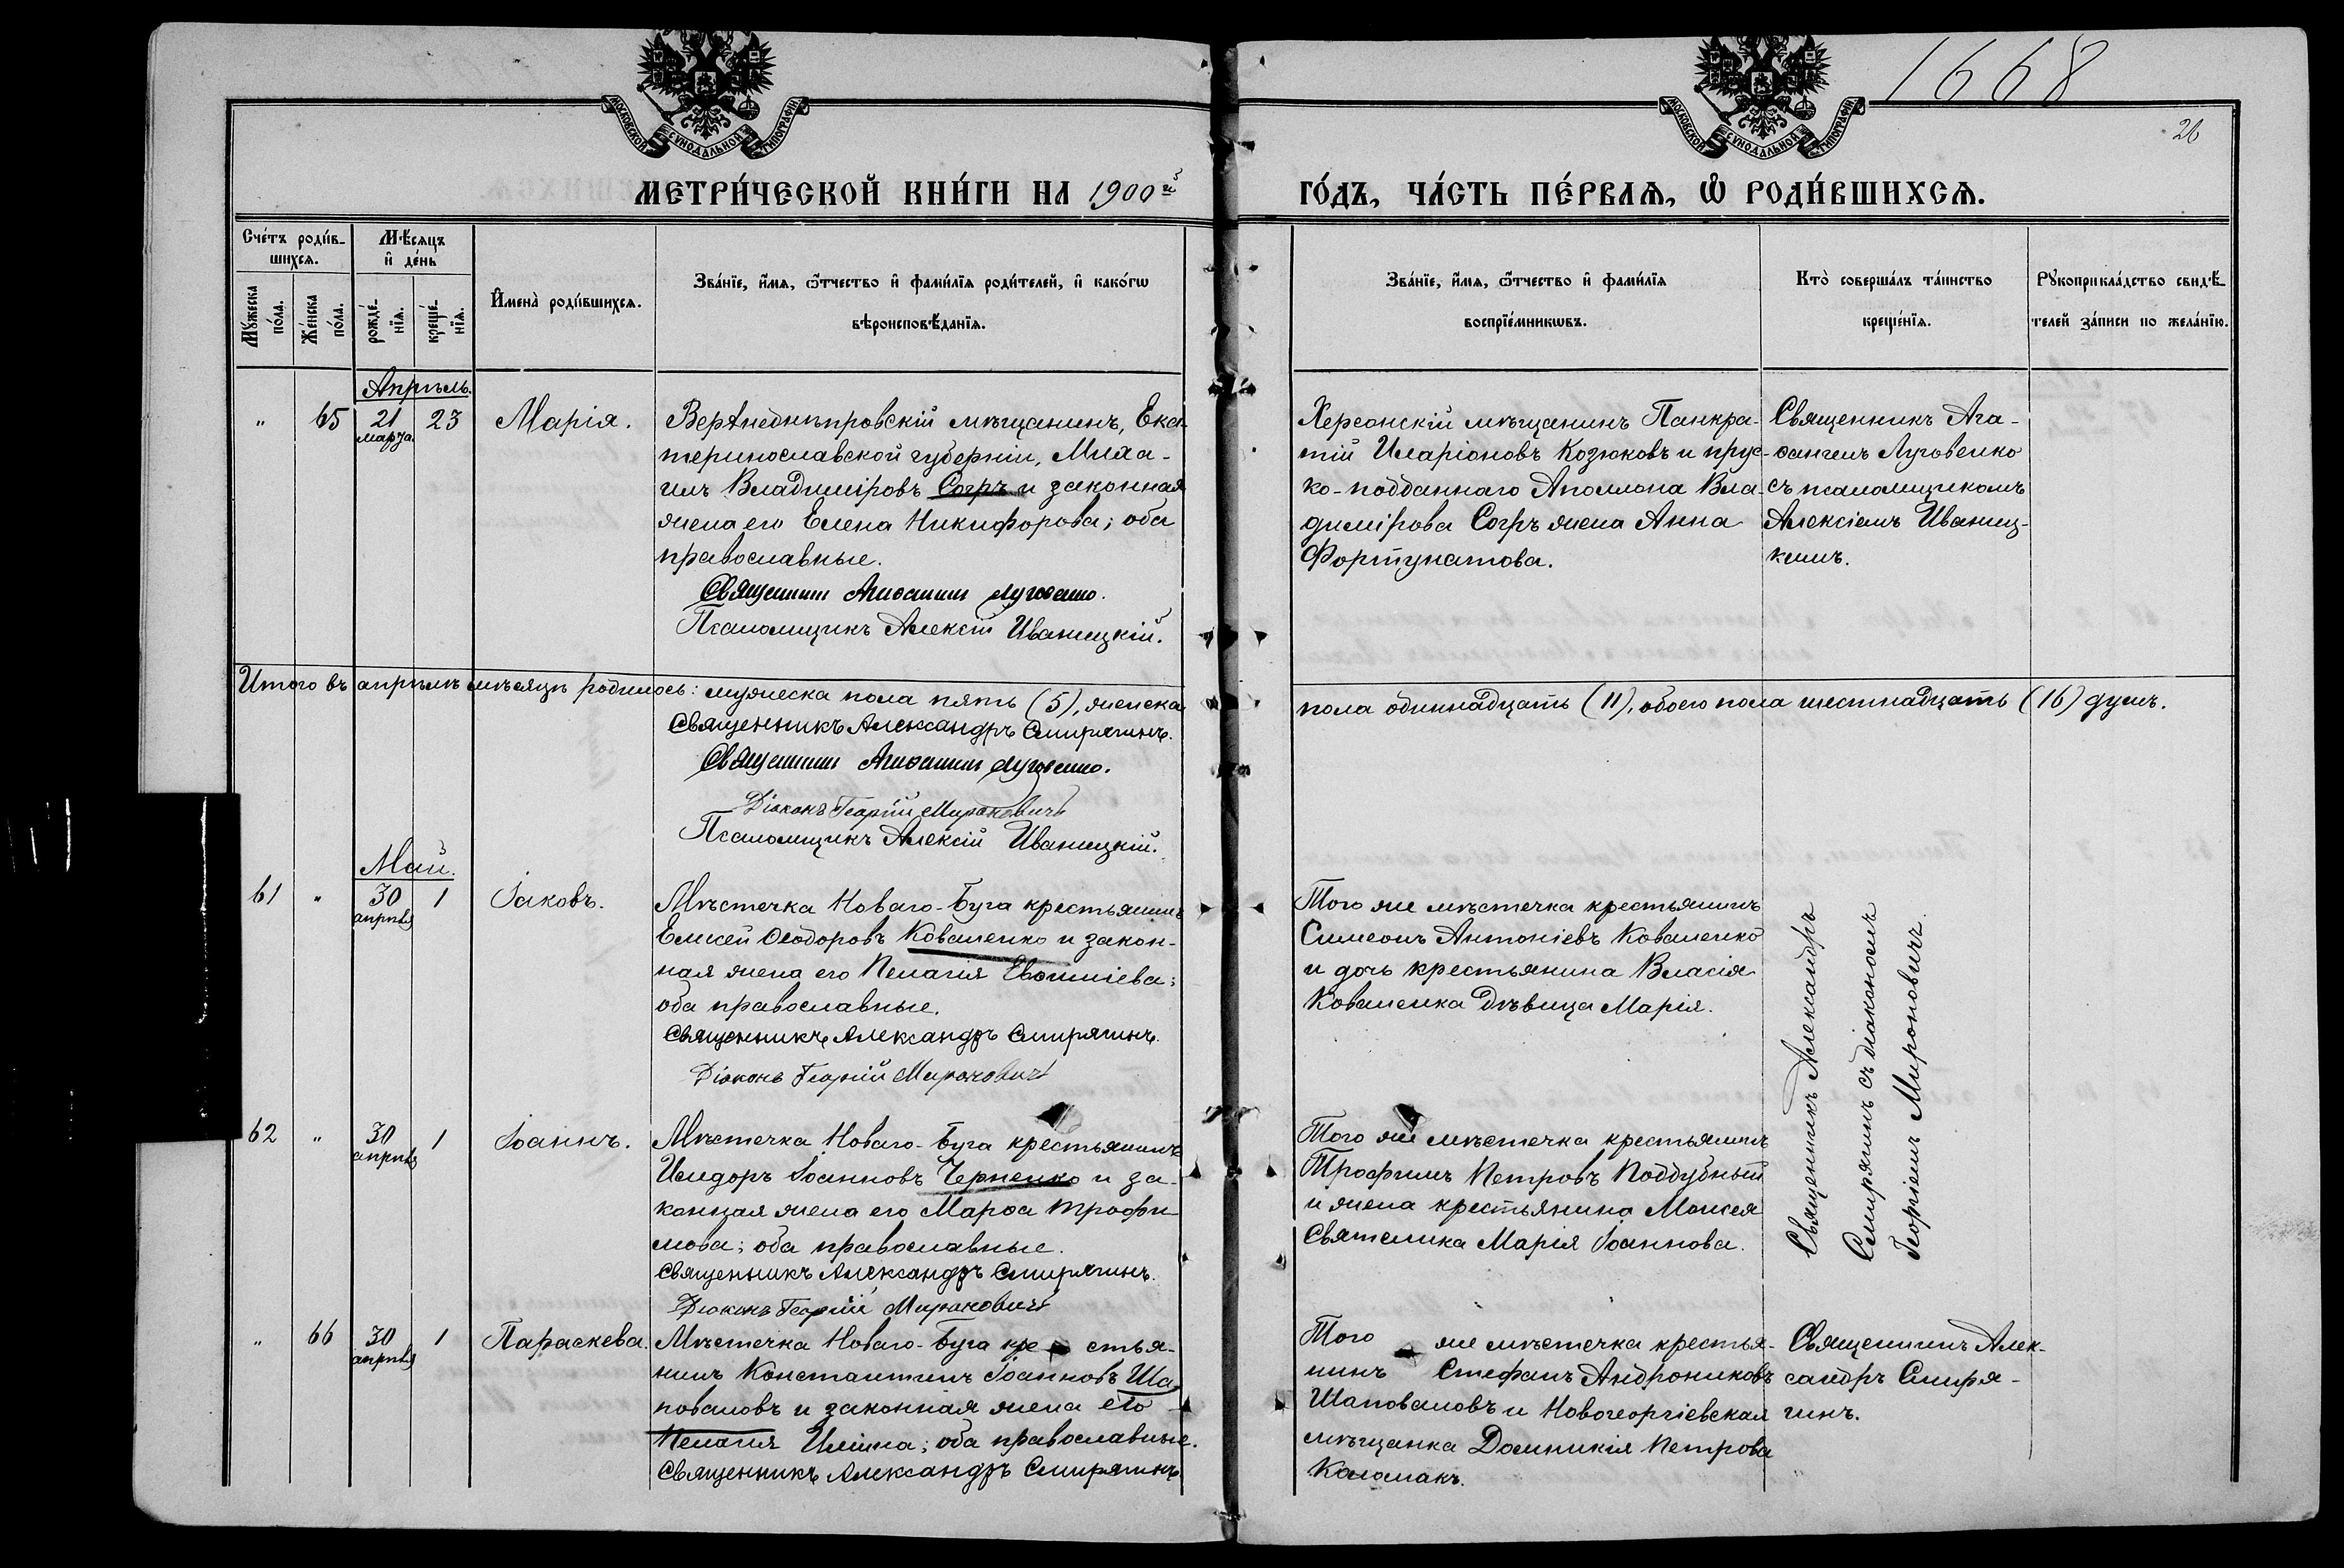 1668
26
МОСКОВСКОЙ СѴНОДАЛЬНОЙ ТИПОГРАФІИ
МОСКОВСКОЙ СѴНОДАЛЬНОЙ ТИПОГРАФІИ
МЕТРИ́ЧЕСКОЙ КНИ́ГИ НА 1900й
ГО́ДЪ, ЧА́СТЬ ПЕ́РВАѦ, Ѡ҆ РОДИ́ВШИХСѦ.
Сче́тъ роди́в-
шихсѧ.
Мꙋ́жеска
по́ла.
Же́нска
по́ла.
Мѣ́сѧцъ
и҆ де́нь
рожде́-
нїѧ.
креще́-
нїѧ.
И҆мена̀ роди́вшихсѧ.
Зва́нїе, и҆́мѧ, ѻ҆́тчество и҆ фами́лїѧ роди́телей, и҆ како́гѡ
вѣроисповѣ́данїѧ.
Зва́нїе, и҆́мѧ, ѻ҆́тчество и҆ фами́лїѧ
воспрїе́мникѡвъ.
Кто̀ соверша́лъ та́инство
креще́нїѧ.
Рꙋкоприкла́дство свидѣ́-
телей за́писи по жела́нїю.
Апрѣль.
" 65 21 марта 23 Марія.
Верхнеднѣпровскій мѣщанинъ, Ека-
теринославской губерніи, Миха-
илъ Владиміровъ Согръ и законная
жена его Елена Никифорова; оба
православные.
Священникъ Агаѳангелъ Луговенко.
Псаломщикъ Алексій Иваницкій.
Херсонскій мѣщанинъ Панкра-
тій Иларіоновъ Козюковъ и прус-
ко-подданнаго Аполлона Вла-
димірова Согръ жена Анна
Фортунатова.
Священникъ Ага-
ѳангелъ Луговенко
съ псаломщикомъ
Алексіемъ Иваниц-
кимъ.
Итого въ апрѣлѣ мѣсяцѣ родилось: мужеска пола пять (5), женска
пола одиннадцать (11), обоего пола шестнадцать (16) душъ.
Священникъ Александръ Смирягинъ.
Священникъ Агаѳангелъ Луговенко.
Діаконъ Георгій Мироновичъ
Псаломщикъ Алексій Иваницкій.
Май.
61 " 30 апрѣля 1 Іаковъ.
Мѣстечка Новаго-Буга крестьянинъ
Елисей Ѳеодоровъ Коваленко и закон-
ная жена его Пелагія Евѳиміева;
оба православные.
Священникъ Александръ Смирягинъ.
Діаконъ Георгій Мироновичъ
Того же мѣстечка крестьянинъ
Симеонъ Антоніевъ Коваленко
и дочь крестьянина Власія
Коваленка дѣвица Марія.
Священникъ Александръ
Смирягинъ съ діакономъ
Георгіемъ Мироновичъ.
62 " 30 апрѣля 1 Іоаннъ.
Мѣстечка Новаго-Буга крестьянинъ
Исидоръ Іоанновъ Черненко и за-
конная жена его Марѳа Трофи-
мова; оба православные.
Священникъ Александръ Смирягинъ.
Діаконъ Георгій Мироновичъ
Того же мѣстечка крестьянинъ
Трофимъ Петровъ Поддубный
и жена крестьянина Моисея
Святелика Марія Іоаннова.
" 66 30 апрѣля 1 Параскева.
Мѣстечка Новаго-Буга кре стья-
нинъ Константинъ Іоанновъ Ша-
поваловъ и законная жена его
Пелагія Иліина; оба православные.
Священникъ Александръ Смирягинъ
Того же мѣстечка крестья-
нинъ Стефанъ Андрониковъ
Шаповаловъ и Новогеоргіевская
мѣщанка Домникія Петрова
Коломакъ.
Священникъ Алек-
сандръ Смиря-
гинъ.